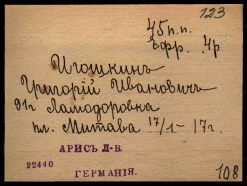 123
45 п.п.
Ефр. 4р
Игошкинъ
Григорій Ивановичъ
91г Ламодоровка
пл. Митава 17/1 - 17г.
АРИСЪ Л-В.
22440
ГЕРМАНІЯ.
108